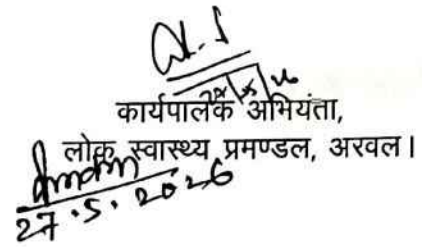 कार्यपालक अभियंता,
लोक स्वास्थ्य प्रमण्डल, अरवल।
27.5.2026